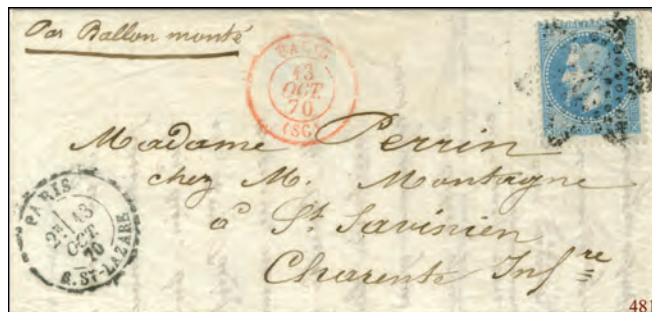 Par Ballon monté
PARIS
13
OCT.
70
(SC)
Madame Perrin
chez M. Montagne
à St Savinien
Charente Infre
PARIS
2E 13
OCT
70
R. ST-LAZARE
481